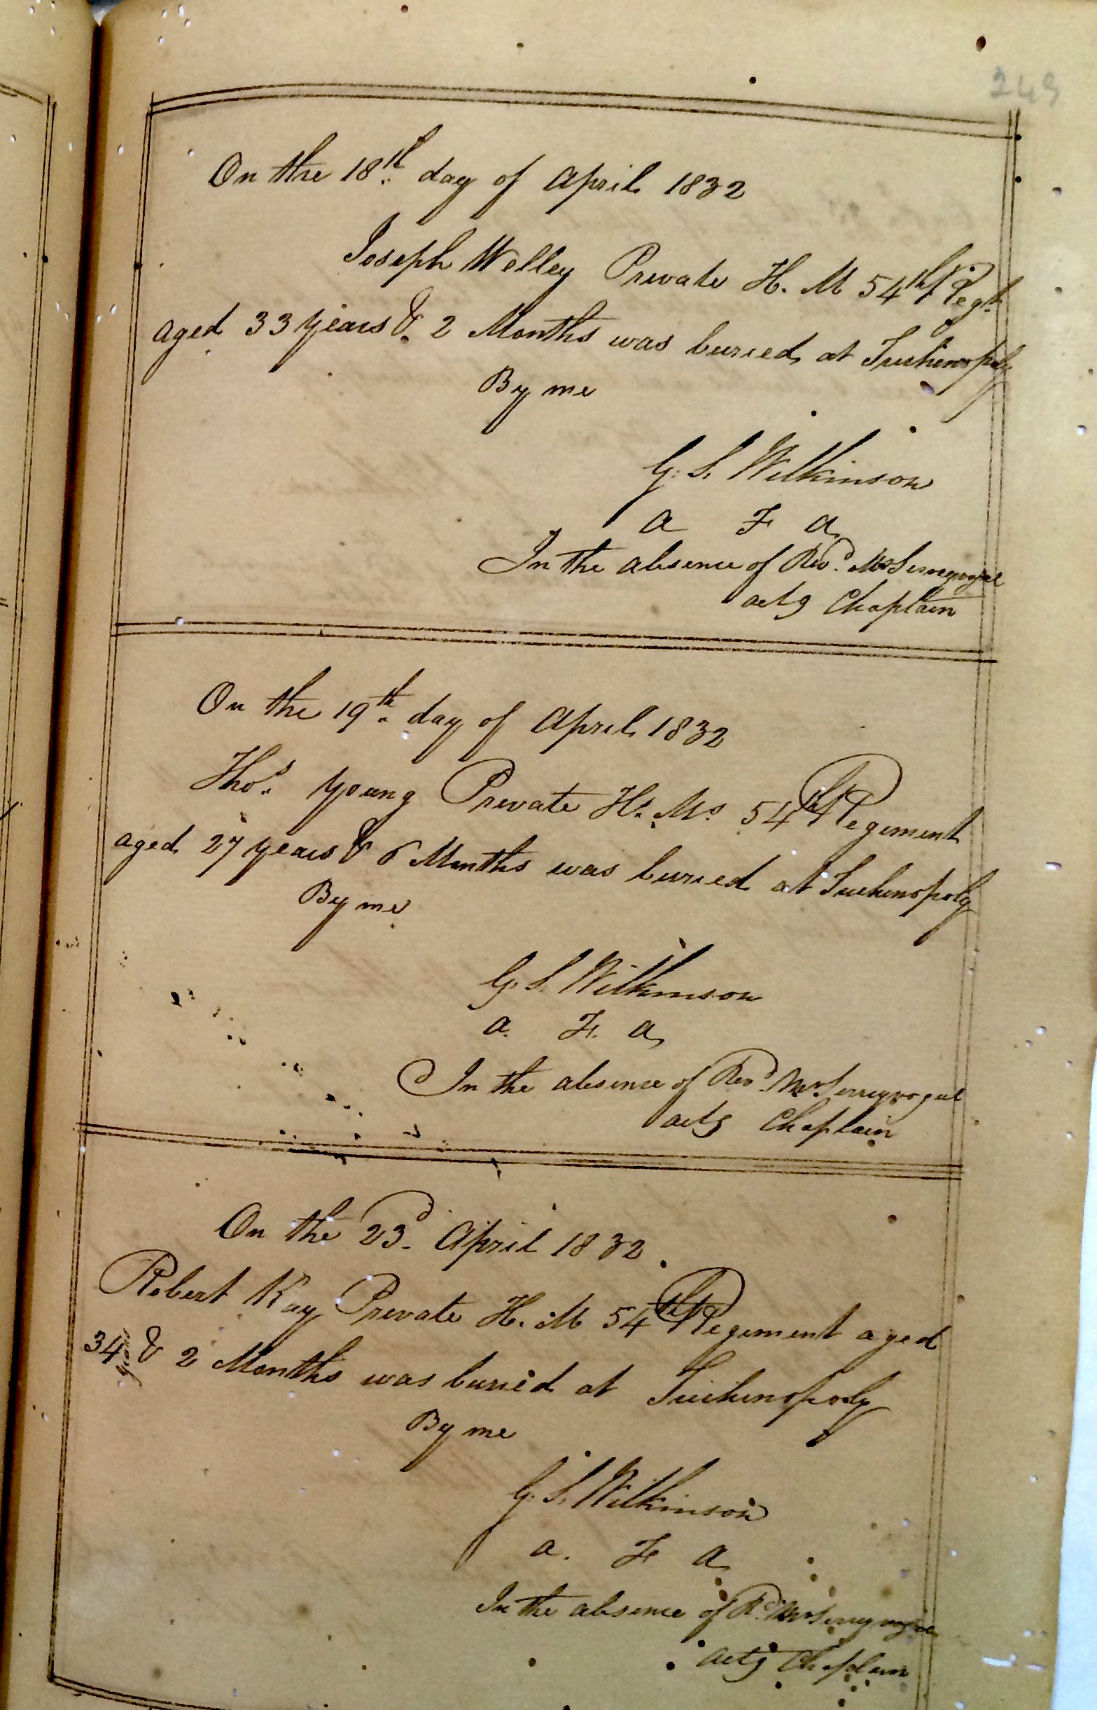 249
On the 18th day of April 1832
Joseph Welley Private H. M 54th Regt.
aged 33 years & 2 Months was buried at Trichinopoly
By me
G. S. Wilkinson
A F A
In the absence of Revd. Mr
actg Chaplain
On the 19th day of April 1832
Thos. Young Private Hs. Ms. 54th Regiment
aged 27 years & 6 Months was buried at Trichinopoly
By me
G. S. Wilkinson
A. F. A
In the absence of Revd. Mr
actg Chaplain
On the 23d. April 1832.
Robert Kay Private H. M 54th Regiment aged
34 years & 2 Months was buried at Trichinopoly
By me
G. S. Wilkinson
A. F A
In the absence of Rd. Mr
actg Chaplain